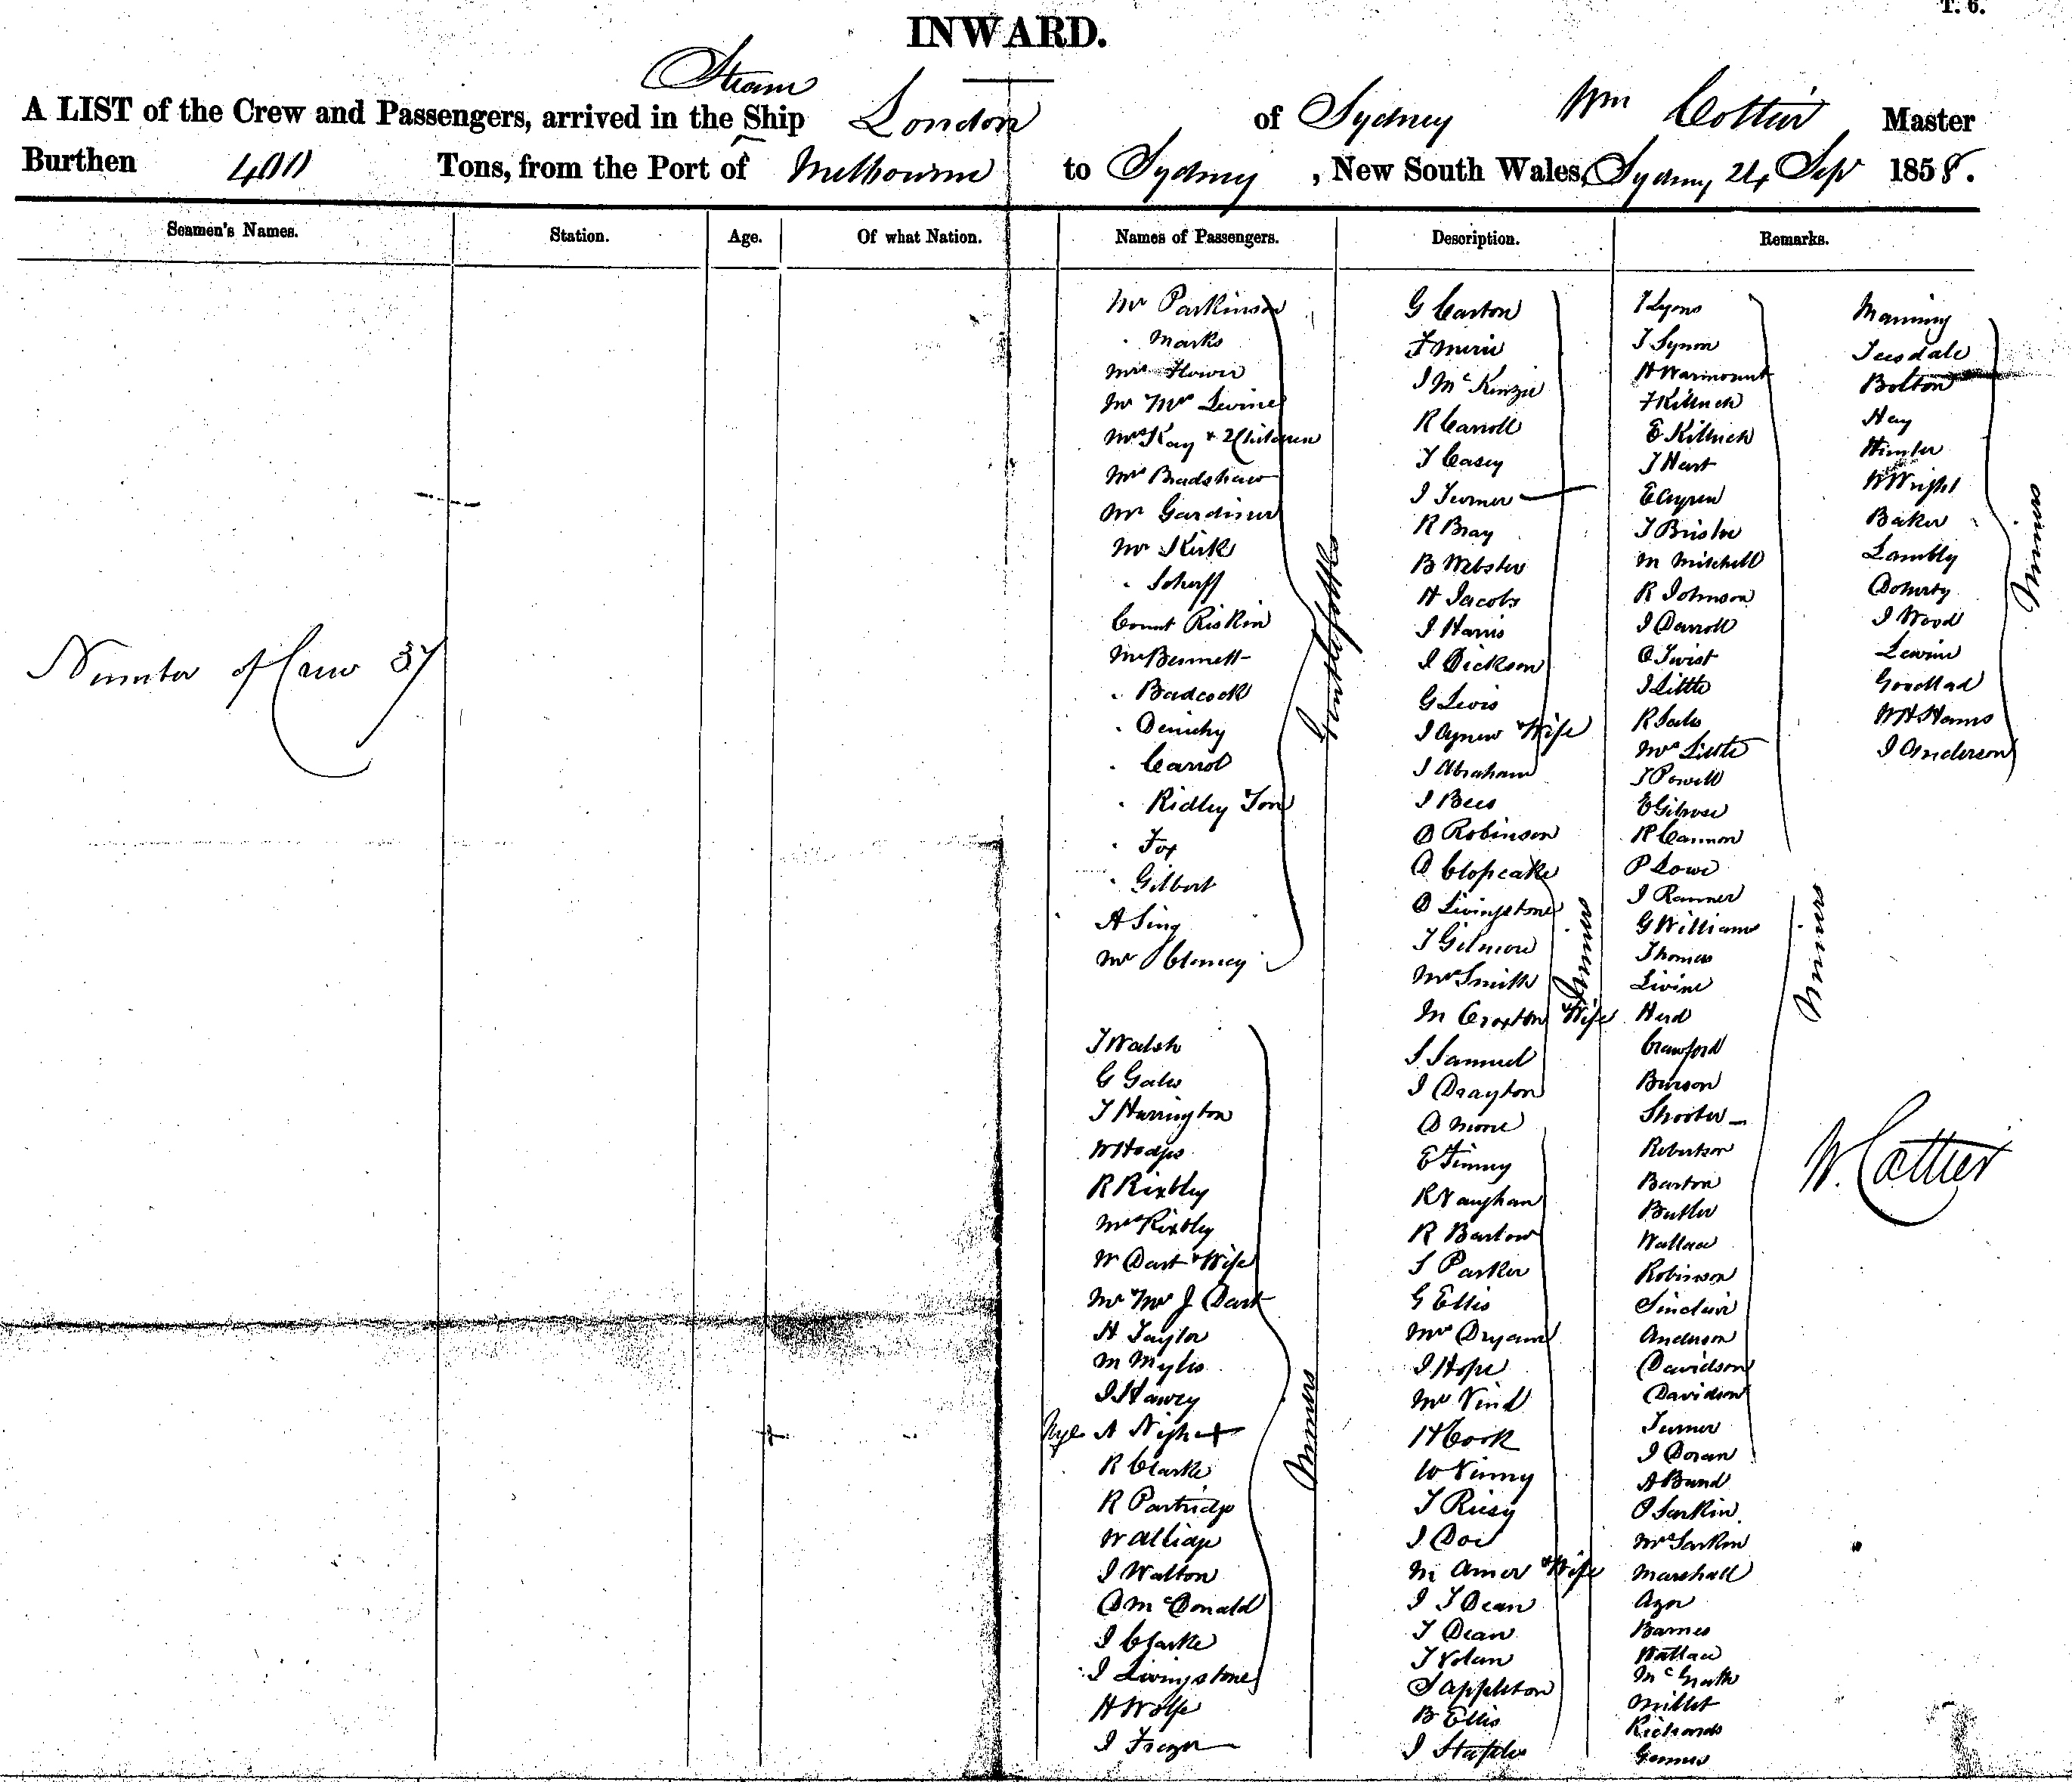 T. 6.
INWARD.
Steam
A LIST of the Crew and Passengers, arrived in the Ship London of Sydney Wm Cottier Master
Burthen 400 Tons, from the Port of Melbourne to Sydney, New South Wales, Sydney 24 Sep 1858.
Seamen's Names. Station. Age. Of what Nation. Names of Passengers. Description. Remarks.
Number of Crew 37
Mr Parkinson
. Marks
Mrs Flower
Mr Mrs Levine
Mrs Kay + 2 Children
Mrs Bradshaw
Mr Gardiner
Mr Kirk
. Scherff
Count Riskin
Mr Bennett
. Badcock
. Denichy
. Carrol
. Ridley
. Fox
. Gilbert
A Sing
Mr Clancy
J Walsh
G Gale
T Harrington
W Hodges
R Rixbley
Mrs Rixbley
W Dart + Wife
Mr Mrs J Dart
H Taylor
M Myles
J Harvey
A Night
R Clarke
R Partridge
J Walton
D McDonald
J Clarke
J Livingstone
H Wolfe
J Frazer
Miners
G Carton
J McKinzie
R Carroll
T Casey
J Turner
R Bray
B Webster
H Jacobs
J Harris
J Dickson
G Levis
J Agnew + Wife
J Abraham
J Bees
D Robinson
D Clopcake
D Livingstone
T Gilmore
Mrs Smith
M Croxton + Wife
S Samuel
J Drayton
D Moore
E Finney
R Vaughan
R Barlow
S Parker
G Ellis
J Hope
H Cook
J Doe
M Amer + Wife
J T Dean
T Dean
T Nolan
S Appleton
B Ellis
J Staples
Miners
T Lyons
J Synon
H Warmount
T Hart
T Bristoe
M Mitchell
R Johnson
J Darroll
O Twist
J Little
R Sale
Mrs Little
T Powell
R Cannon
P Lowe
J Ranner
G Williams
Thomas
Levine
Herd
Crawford
Burson
Shooter
Robertson
Barton
Butler
Wallace
Robinson
Sinclair
Anderson
Davidson
Davidson
Turner
J Doran
A Bund
J Larkin
Mrs Larkin
Marshall
Barnes
Wallace
McGrath
Millet
Richards
Miners
Manning
Teesdale
Bolton
Hay
Hunter
W Wright
Baker
Lambly
Doherty
J Wood
Levine
Goodlad
W H Harris
J Anderson
Miners
W. Cottier